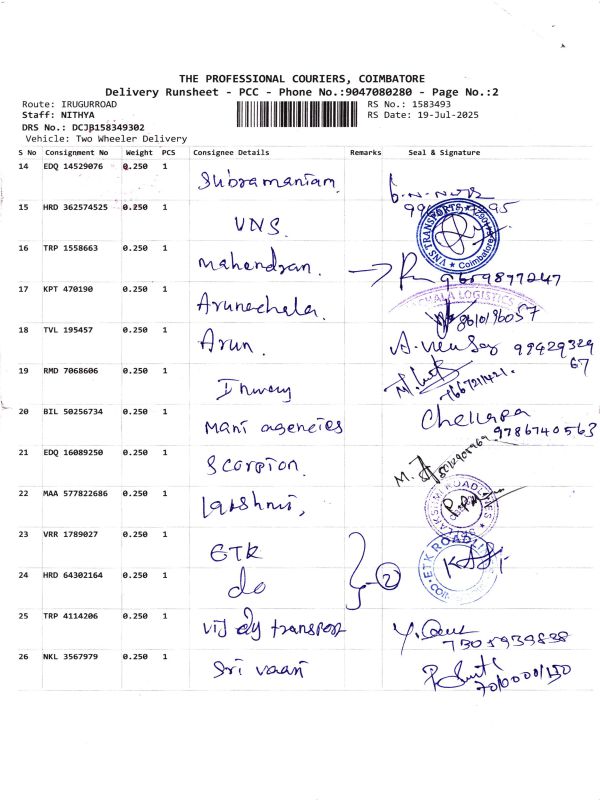 THE PROFESSIONAL COURIERS, COIMBATORE
Delivery Runsheet - PCC - Phone No.:9047080280 - Page No.:2
Route: IRUGURROAD
Staff: NITHYA
DRS No.: DCJB158349302
Vehicle: Two Wheeler Delivery
RS No.: 1583493
RS Date: 19-Jul-2025
S No Consignment No Weight PCS Consignee Details Remarks Seal & Signature
14 EDQ 14529076 0.250 1 Subramaniam
15 HRD 362574525 0.250 1 VNS. VNS TRANSPORTS Coimbatore
16 TRP 1558663 0.250 1 Mahendran.
17 KPT 470190 0.250 1 Arunachala. LOGISTICS 8610196057
18 TVL 195457 0.250 1 Arun. 9942932967
19 RMD 7068606 0.250 1
20 BIL 50256734 0.250 1 Mani agencies Chellapa 9786740563
21 EDQ 16089250 0.250 1 Scorpion.
22 MAA 577822686 0.250 1 LAKSHMI ROADLINES
23 VRR 1789027 0.250 1 ETK ETK ROAD
24 HRD 64302164 0.250 1 do 2
25 TRP 4114206 0.250 1 transport
26 NKL 3567979 0.250 1 Sri vaani